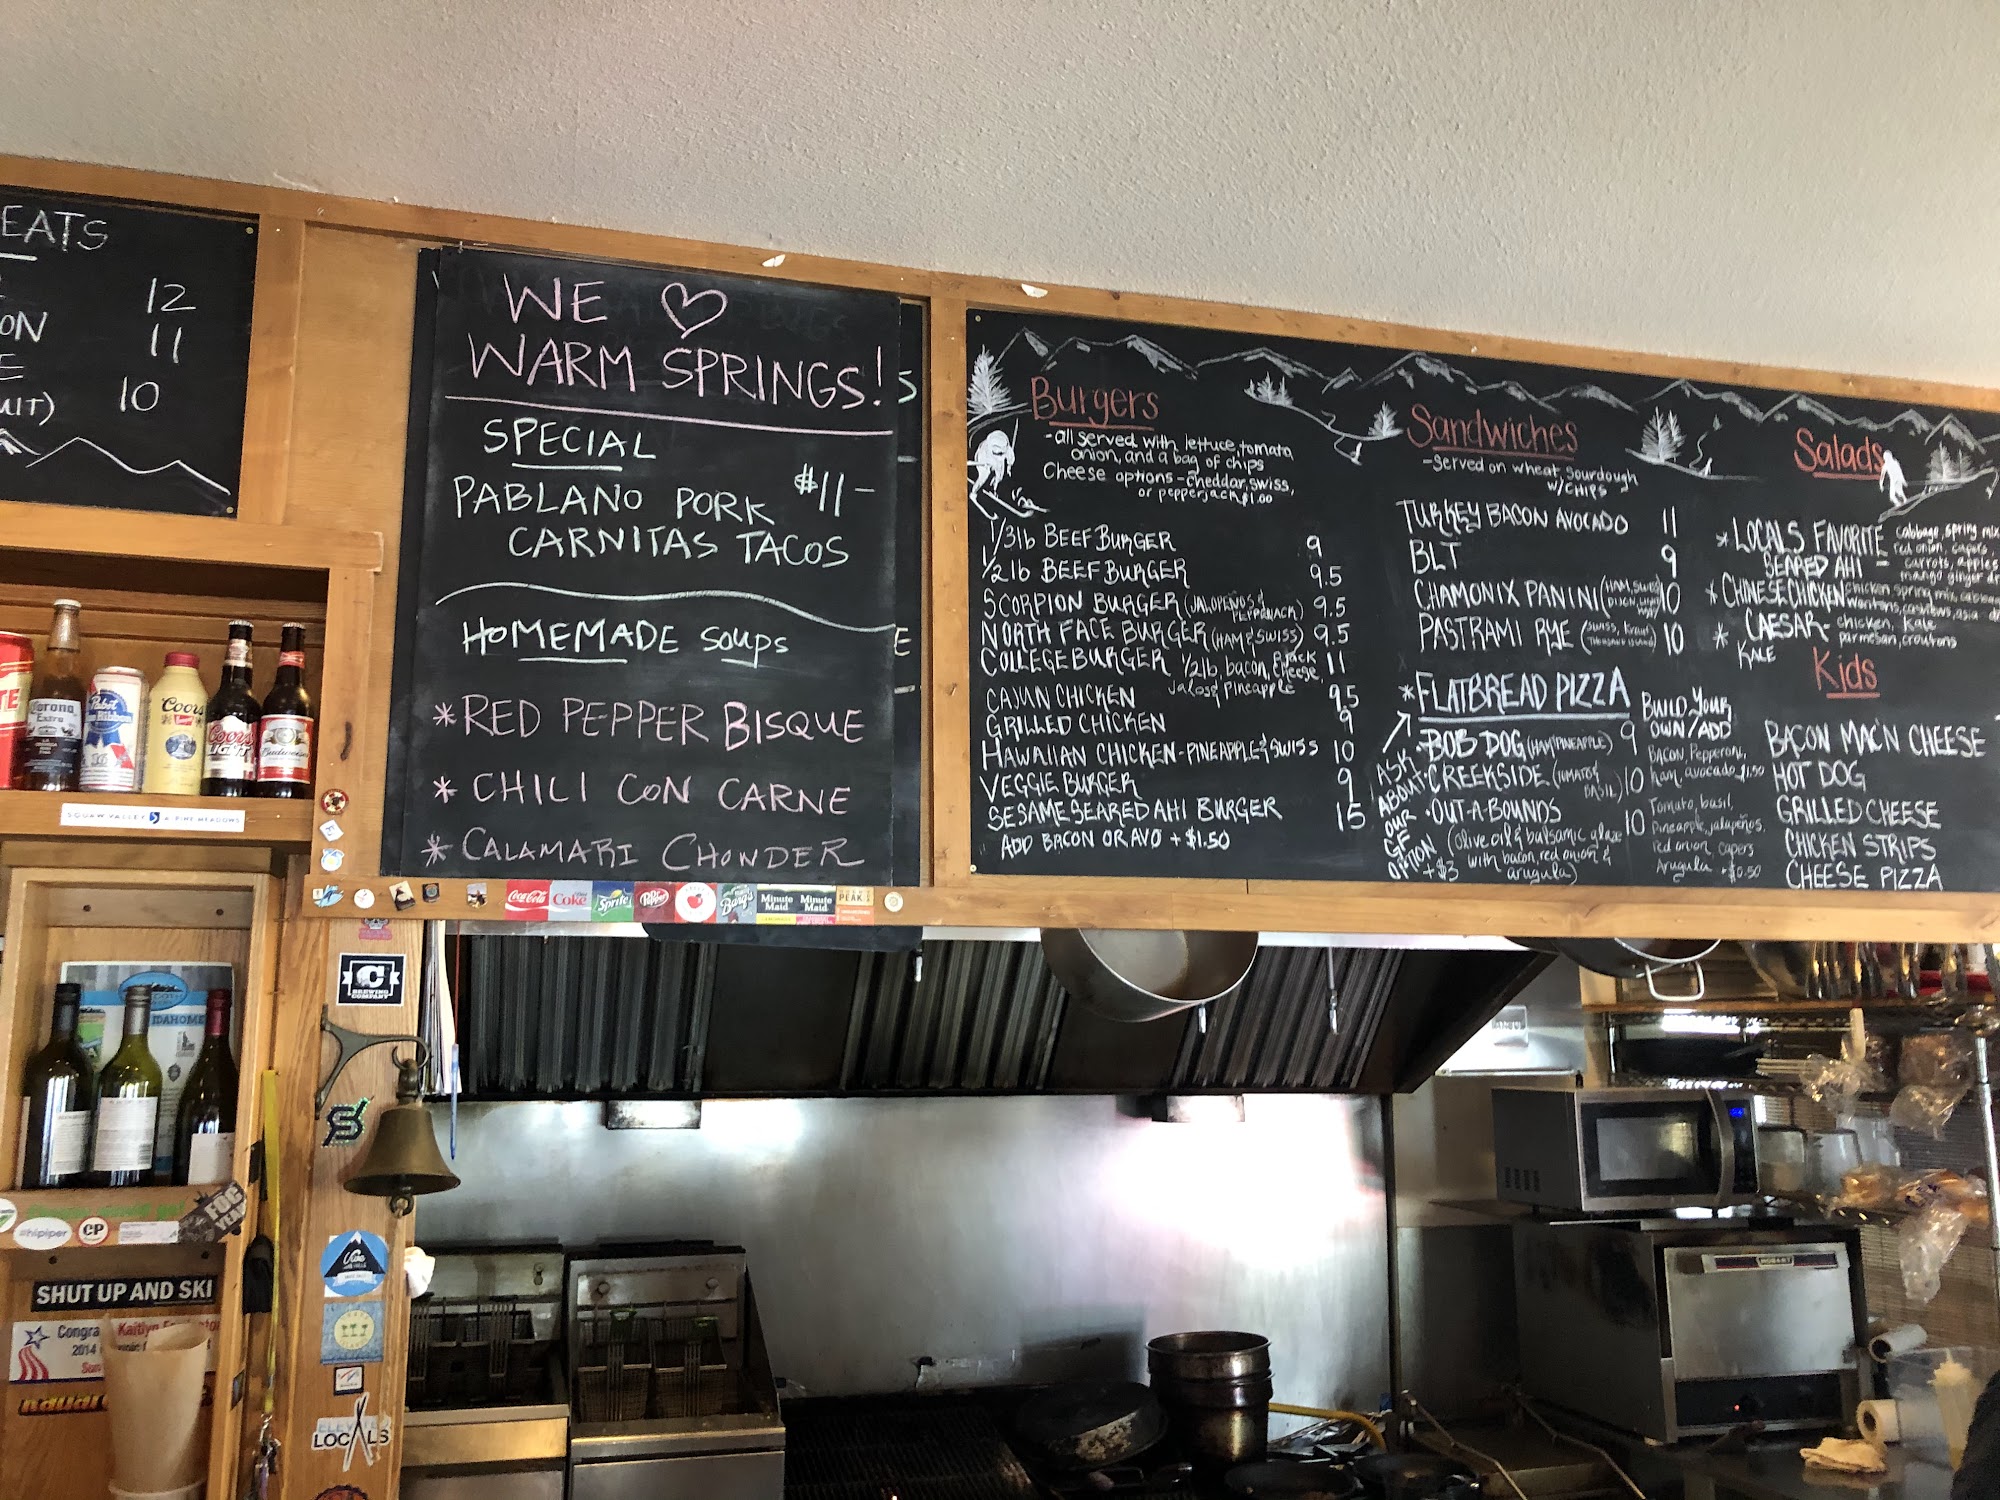 EATS
12
ON 11
E
UIT) 10
WE ♡
WARM SPRINGS!
SPECIAL
PABLANO PORK $11-
CARNITAS TACOS
HOMEMADE SOUPS
*RED PEPPER BISQUE
* CHILI CON CARNE
* CALAMARI CHOWDER
Burgers
-all served with lettuce, tomato,
onion, and a bag of chips
Cheese options - cheddar, swiss,
or pepperjack $1.00
1/3lb BEEF BURGER 9
1/2lb BEEF BURGER 9.5
SCORPION BURGER (JALOPEÑOS & PEPPERJACK) 9.5
NORTH FACE BURGER (HAM & SWISS) 9.5
COLLEGE BURGER 1/2lb, bacon, pjack cheese, 11
jalos & pineapple
CAJUN CHICKEN 9.5
GRILLED CHICKEN 9
HAWAIIAN CHICKEN-PINEAPPLE & SWISS 10
VEGGIE BURGER 9
SESAME SEARED AHI BURGER 15
ADD BACON OR AVO + $1.50
Sandwiches
-served on wheat, sourdough
w/CHIPS
TURKEY BACON AVOCADO 11
BLT 9
CHAMONIX PANINI (HAM, SWISS 10
PASTRAMI RYE (SWISS, KRAUT 10
*FLATBREAD PIZZA
·BOB DOG (HAM/PINEAPPLE) 9
·CREEKSIDE (TOMATO & BASIL) 10
·OUT-A-BOUNDS 10
(olive oil & balsamic glaze
with bacon, red onion &
arugula)
ASK
ABOUT
OUR
GF
OPTION
+$3
BUILD YOUR
OWN/ADD
BACON, Pepperoni,
ham, avocado $1.50
Tomato, basil,
Pineapple, jalapeños,
red onion, capers
Arugula +$0.50
Salads
* LOCALS FAVORITE cabbage, spring mix
SEARED AHI - red onion, capers,
carrots, apples
mango ginger
* CHINESE CHICKEN chicken, spring mix, cabbage
wontons, cashews, asia
* CAESAR- chicken, Kale
KALE parmesan, croutons
Kids
BACON MAC'N CHEESE
HOT DOG
GRILLED CHEESE
CHICKEN STRIPS
CHEESE PIZZA
Corona
Extra
Pabst
Blue Ribbon
Coors
Coors
LIGHT
Budweiser
SQUAW VALLEY ALPINE MEADOWS
Coca-Cola
Coke
Sprite
Dr Pepper
Barq's
Minute
Maid
Minute
Maid
PEAK
C
BREWING
COMPANY
IDAHOME
#hipiper
CP
FOC
YEAH
SHUT UP AND SKI
Congra
Kaitlyn
2014
Sun
LOCALS
HOBART